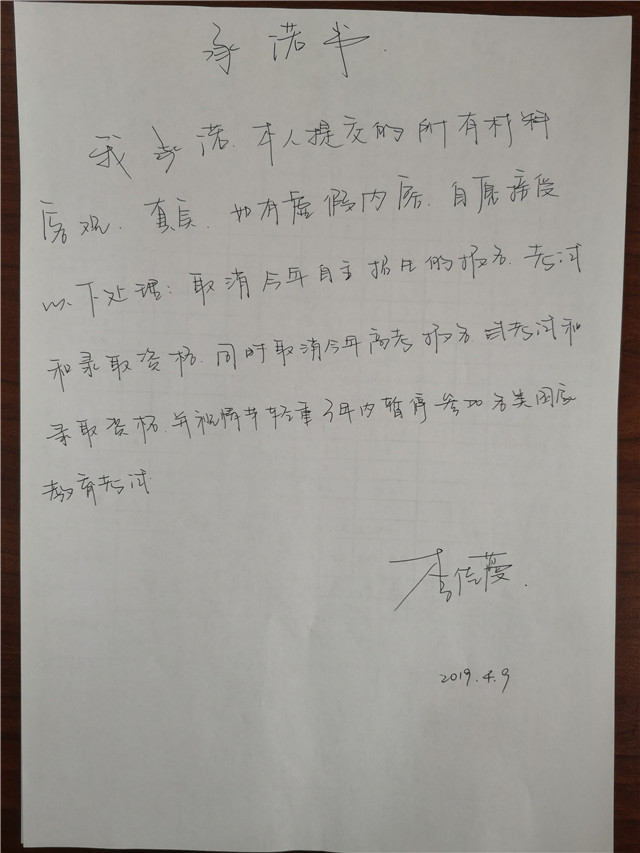 承诺书.
我承诺.本人提交的所有材料
客观.真实.如有虚假内容.自愿接受
以下处理:取消今年自主招生的报名.考试
和录取资格.同时取消今年高考报名.考试和
录取资格.并视情节轻重3年内暂停参加各类国家
教育考试
李佳蔓.
2019.4.9